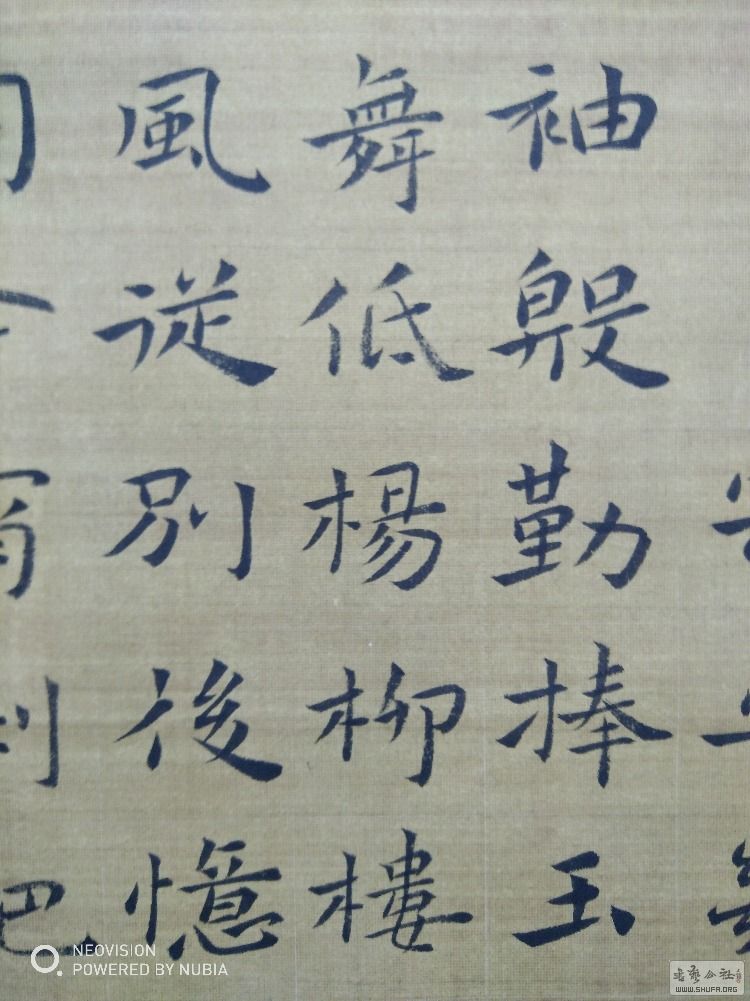 袖殷勤捧玉
舞低楊柳樓
風従別後憶
NEOVISION
POWERED BY NUBIA
WWW.SHUFA.ORG